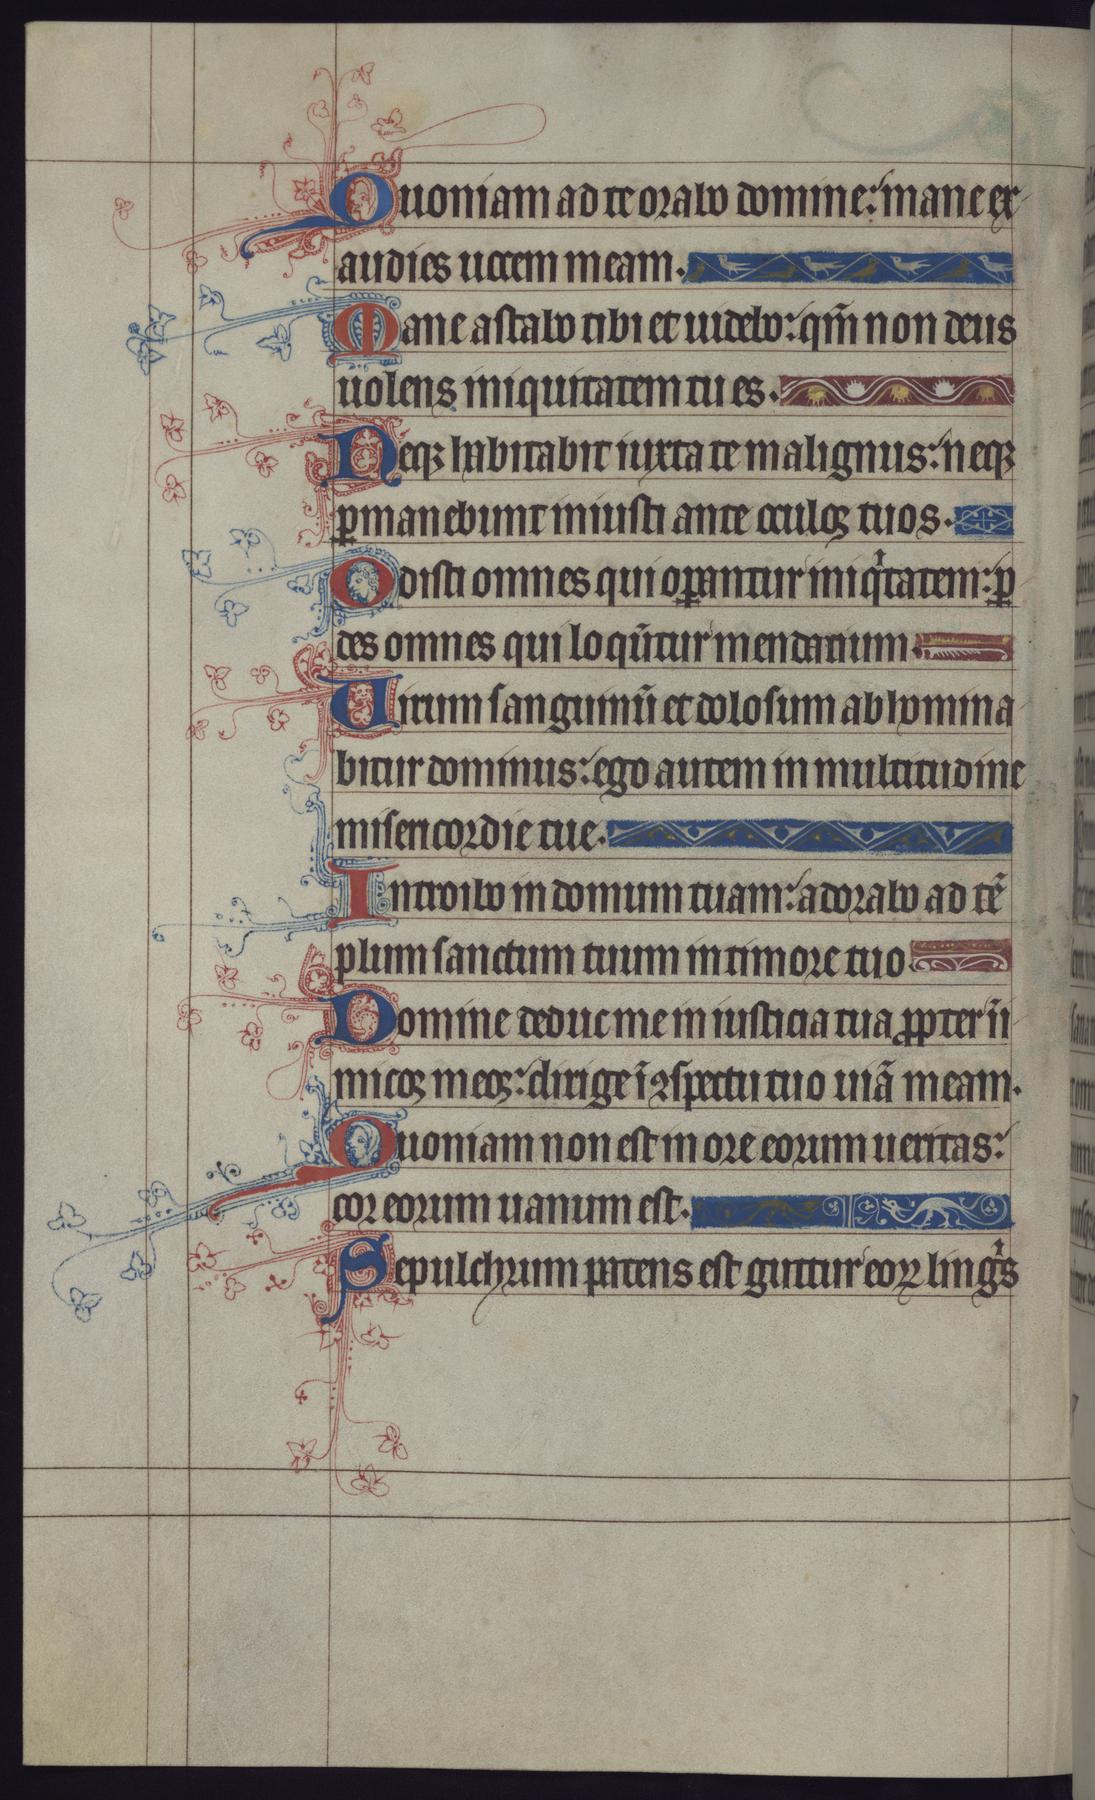 Quoniam ad te orabo domine: mane ex
audies uocem meam.
Mane astabo tibi et uidebo: qm̄ non deus
uolens iniquitatem tu es.
Neqꝫ habitabit iuxta te malignus: neqꝫ
ꝑmanebunt iniusti ante oculoꝫ tuos.
Odisti omnes qui oꝑantur iniqͥtatem: ꝑ
des omnes qui loqūtur mendacium.
Uirum sanguinū et dolosum abhomina
bitur dominus: ego autem in multitudine
misericordie tue.
Introibo in domum tuam: adorabo ad tē
plum sanctum tuum in timore tuo.
Domine deduc me in iusticia tua ꝓpter īi
micoꝫ meoꝫ: dirige ī ꝯspectu tuo uiā meam.
Quoniam non est in ore eorum ueritas:
cor eorum uanum est.
Sepulchrum patens est guttur eoꝝ lingͥs